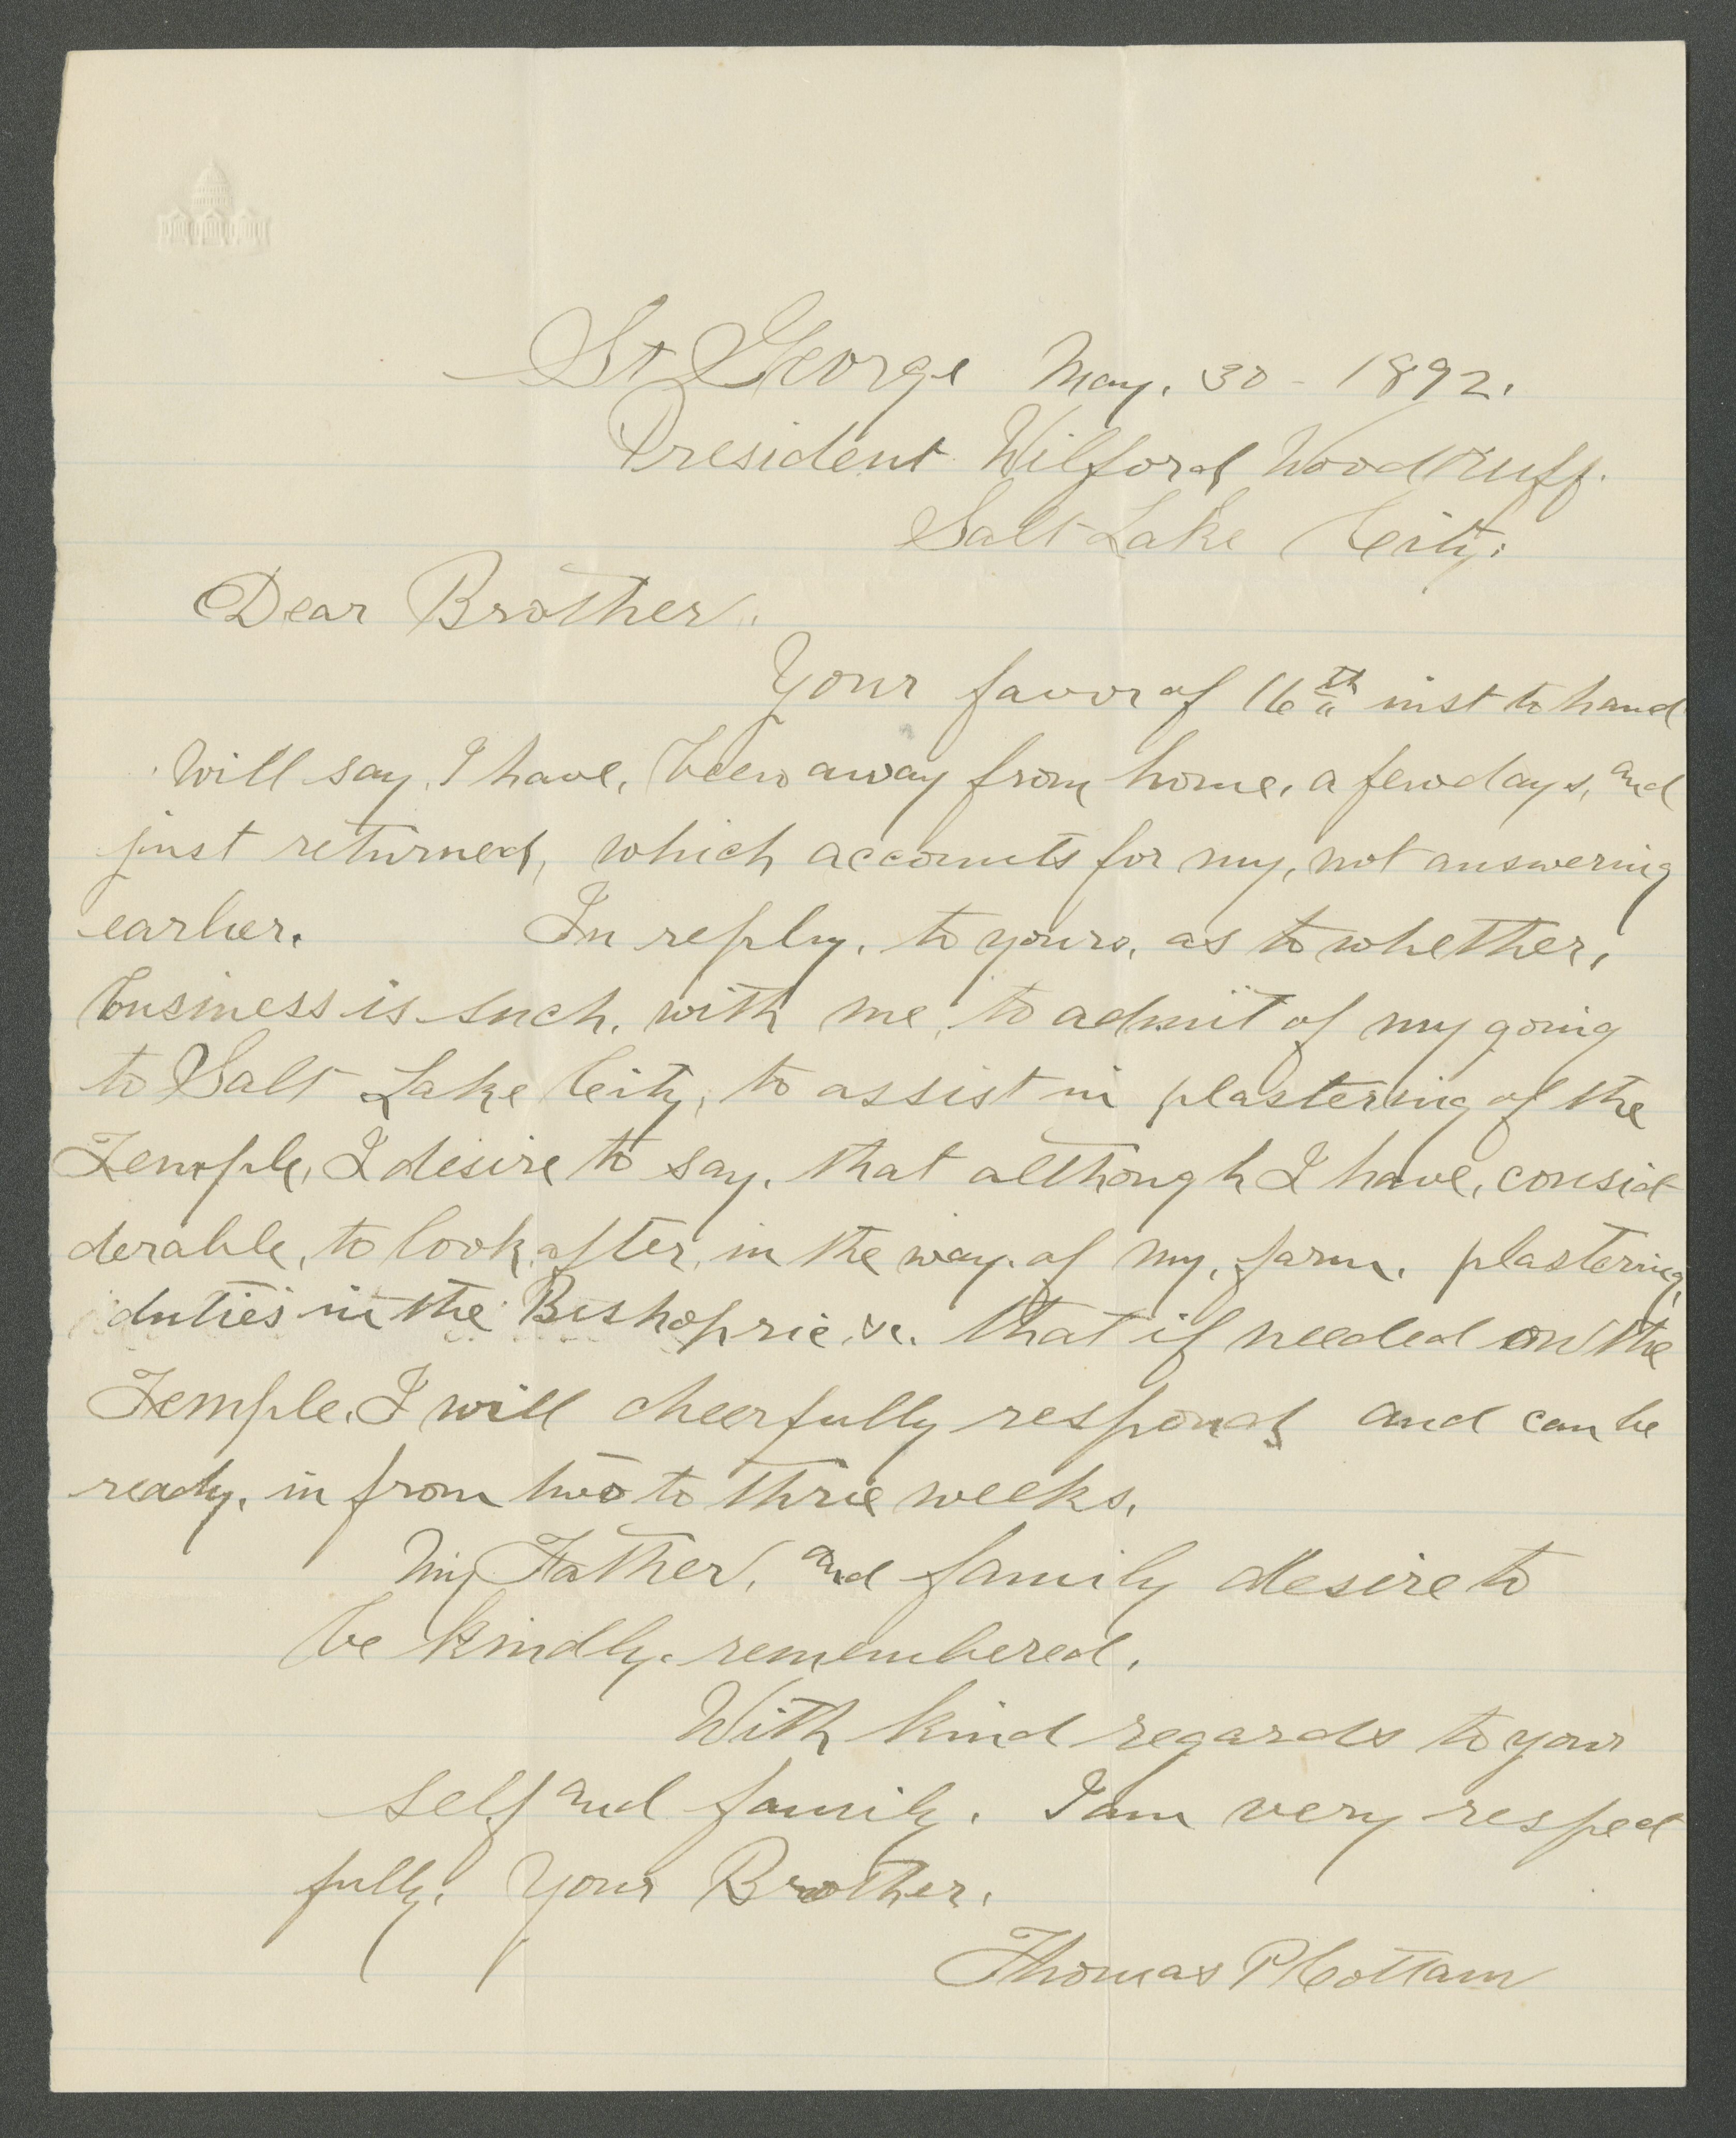 St George May. 30 - 1892.
President Wilford Woodruff.
Salt Lake City:
Dear Brother.
Your favor of 16th inst to hand
will say, I have, been away from home, a few days, and
just returned, which accounts for my, not answering
earlier. In reply, to yours, as to whether,
business is such, with me, to admit of my going
to Salt Lake City, to assist in plastering of the
Temple, I desire to say, that although I have, consid
derable, to look after, in the way of my, farm, plastering,
duties in the Bishopric &c. that if needed on the
Temple, I will cheerfully respond and can be
ready, in from two to three weeks.
My Father, and family desire to
be kindly remembered.
With kind regards to your
self and family. I am very respect
fully, Your Brother,
Thomas P Cottam